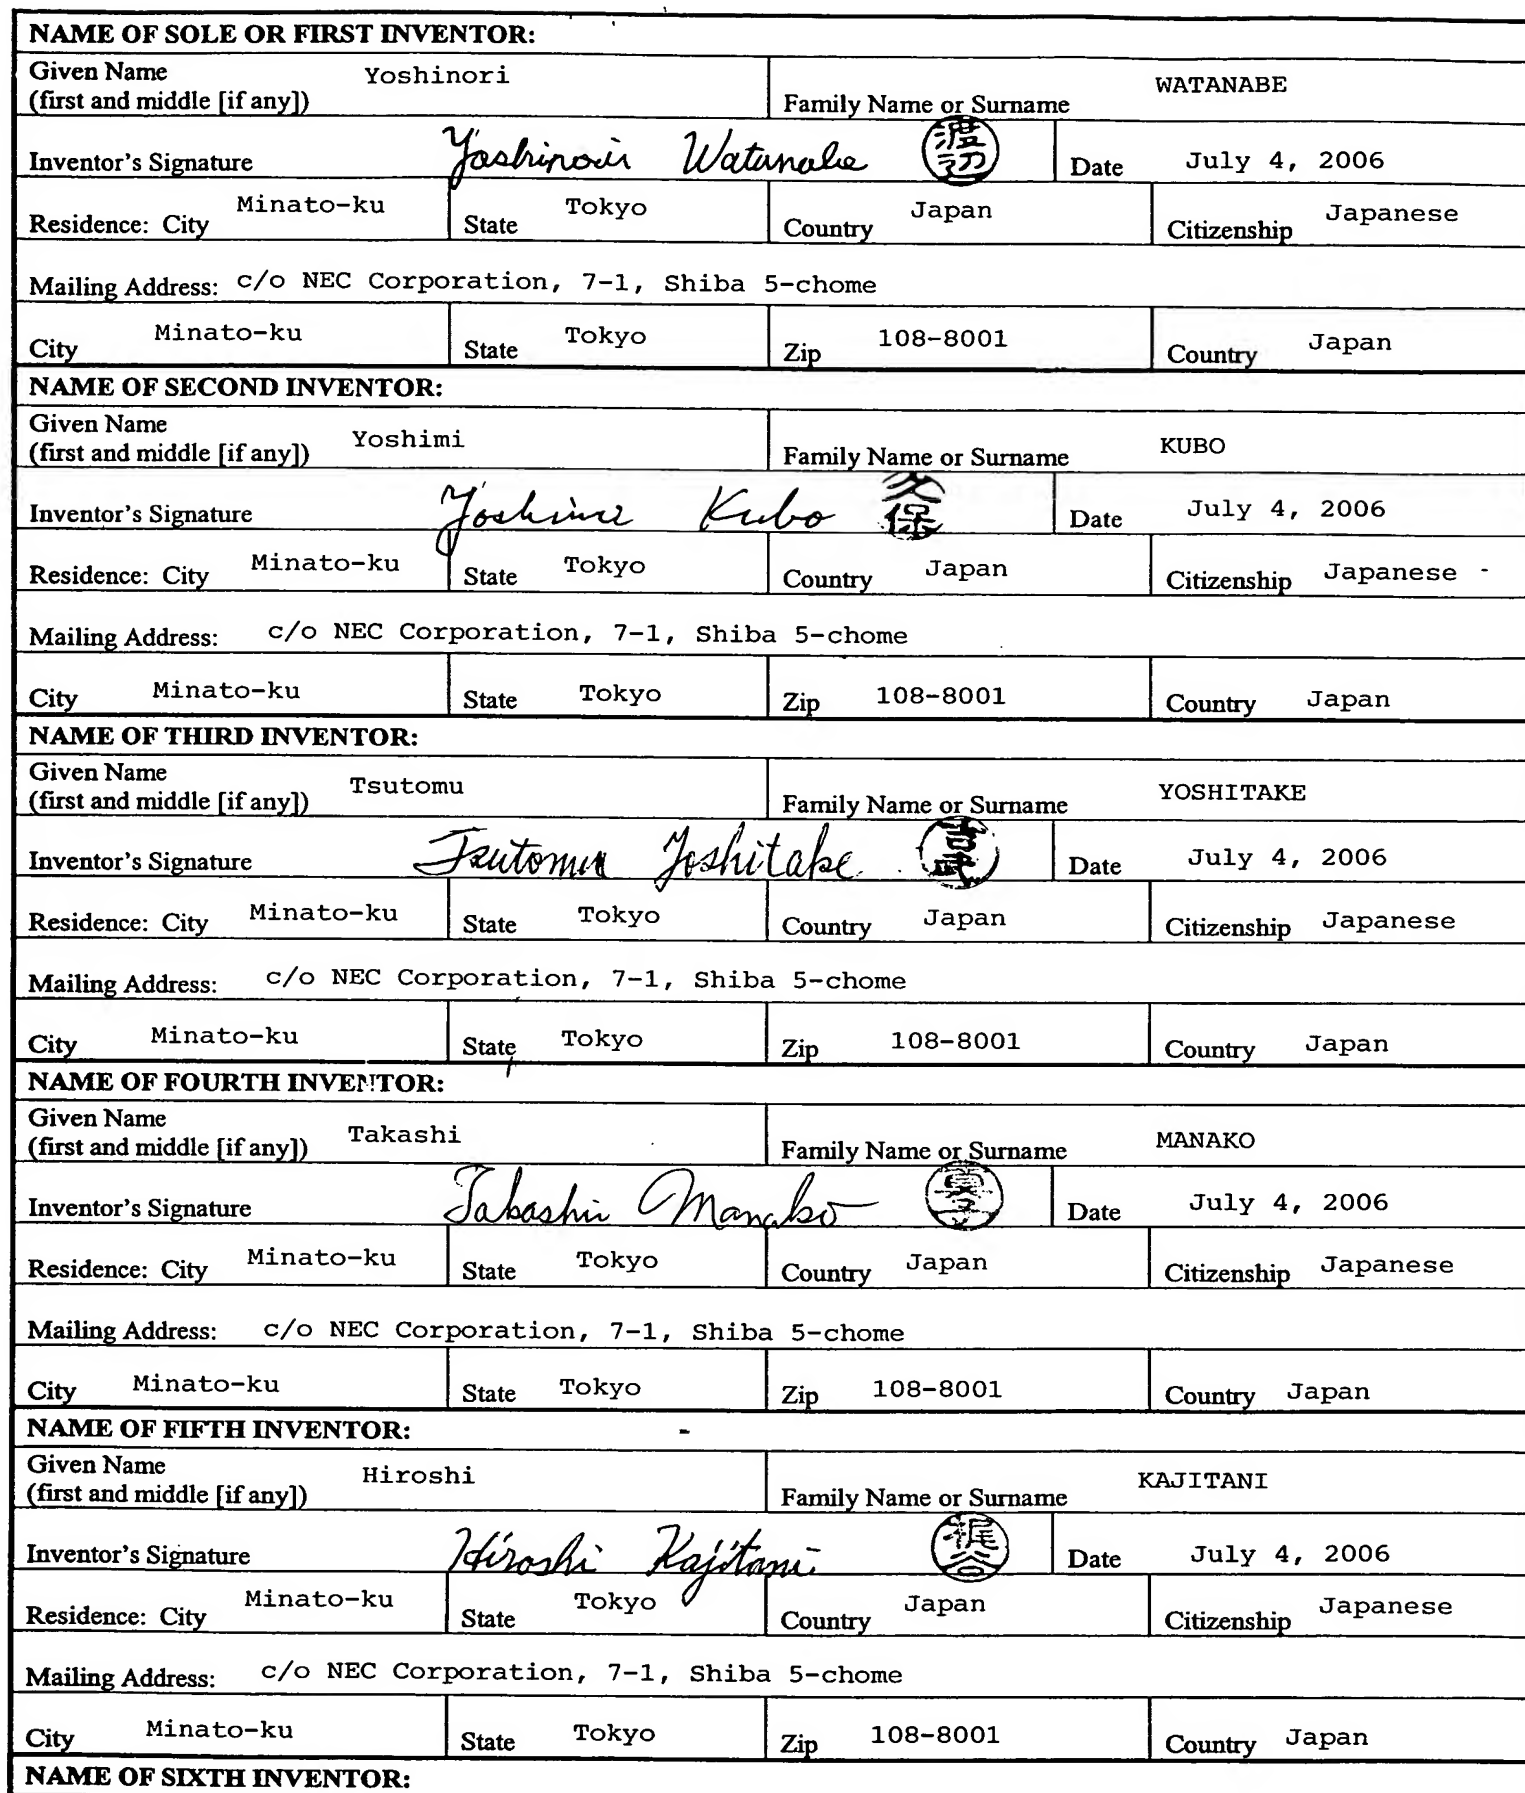 NAME OF SOLE OR FIRST INVENTOR:
Given Name
(first and middle [if any]) Yoshinori Family Name or Surname WATANABE
Inventor's Signature Yoshinori Watanabe 渡辺 Date July 4, 2006
Residence: City Minato-ku State Tokyo Country Japan Citizenship Japanese
Mailing Address: c/o NEC Corporation, 7-1, Shiba 5-chome
City Minato-ku State Tokyo Zip 108-8001 Country Japan
NAME OF SECOND INVENTOR:
Given Name
(first and middle [if any]) Yoshimi Family Name or Surname KUBO
Inventor's Signature Yoshimi Kubo 久保 Date July 4, 2006
Residence: City Minato-ku State Tokyo Country Japan Citizenship Japanese
Mailing Address: c/o NEC Corporation, 7-1, Shiba 5-chome
City Minato-ku State Tokyo Zip 108-8001 Country Japan
NAME OF THIRD INVENTOR:
Given Name
(first and middle [if any]) Tsutomu Family Name or Surname YOSHITAKE
Inventor's Signature Tsutomu Yoshitake 吉武 Date July 4, 2006
Residence: City Minato-ku State Tokyo Country Japan Citizenship Japanese
Mailing Address: c/o NEC Corporation, 7-1, Shiba 5-chome
City Minato-ku State Tokyo Zip 108-8001 Country Japan
NAME OF FOURTH INVENTOR:
Given Name
(first and middle [if any]) Takashi Family Name or Surname MANAKO
Inventor's Signature Takashi Manako Date July 4, 2006
Residence: City Minato-ku State Tokyo Country Japan Citizenship Japanese
Mailing Address: c/o NEC Corporation, 7-1, Shiba 5-chome
City Minato-ku State Tokyo Zip 108-8001 Country Japan
NAME OF FIFTH INVENTOR:
Given Name
(first and middle [if any]) Hiroshi Family Name or Surname KAJITANI
Inventor's Signature Hiroshi Kajitani 梶谷 Date July 4, 2006
Residence: City Minato-ku State Tokyo Country Japan Citizenship Japanese
Mailing Address: c/o NEC Corporation, 7-1, Shiba 5-chome
City Minato-ku State Tokyo Zip 108-8001 Country Japan
NAME OF SIXTH INVENTOR: